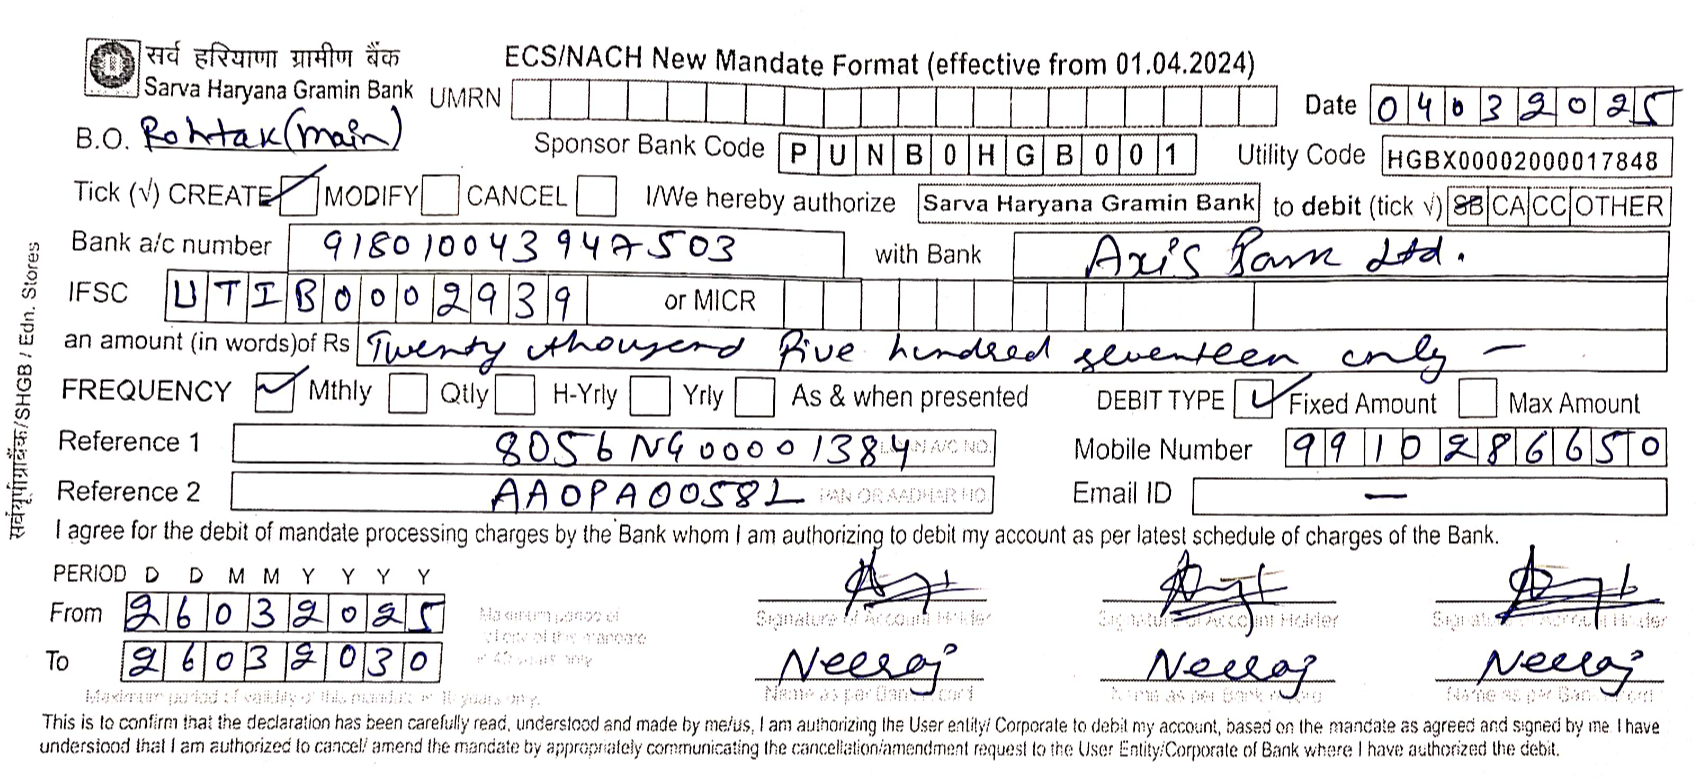 सर्व हरियाणा ग्रामीण बैंक
Sarva Haryana Gramin Bank
ECS/NACH New Mandate Format (effective from 01.04.2024)
UMRN
Date 04032025
B.O. Rohtak (main)
Sponsor Bank Code PUNB0HGB001 Utility Code HGBX00002000017848
Tick (√) CREATE MODIFY CANCEL I/We hereby authorize Sarva Haryana Gramin Bank to debit (tick √) SB CA CC OTHER
Bank a/c number 918010043947503 with Bank Axis Bank Ltd.
IFSC UTIB0002939 or MICR
an amount (in words)of Rs Twenty thousend five hundred seventeen only —
FREQUENCY Mthly Qtly H-Yrly Yrly As & when presented DEBIT TYPE Fixed Amount Max Amount
Reference 1 8056NG00001384 A/C NO. Mobile Number 9910286650
Reference 2 AAOPA0058L PAN OR AADHAR NO. Email ID —
I agree for the debit of mandate processing charges by the Bank whom I am authorizing to debit my account as per latest schedule of charges of the Bank.
PERIOD D D M M Y Y Y Y
From 26032025
To 26032030
Signature of Account Holder Signature of Account Holder Signature of Account Holder
Neeraj Neeraj Neeraj
Maximum period of validity of this mandate is years only.
This is to confirm that the declaration has been carefully read, understood and made by me/us, I am authorizing the User entity/ Corporate to debit my account, based on the mandate as agreed and signed by me. I have
understood that I am authorized to cancel/ amend the mandate by appropriately communicating the cancellation/amendment request to the User Entity/Corporate of Bank where I have authorized the debit.
/SHGB / Edn. Stores